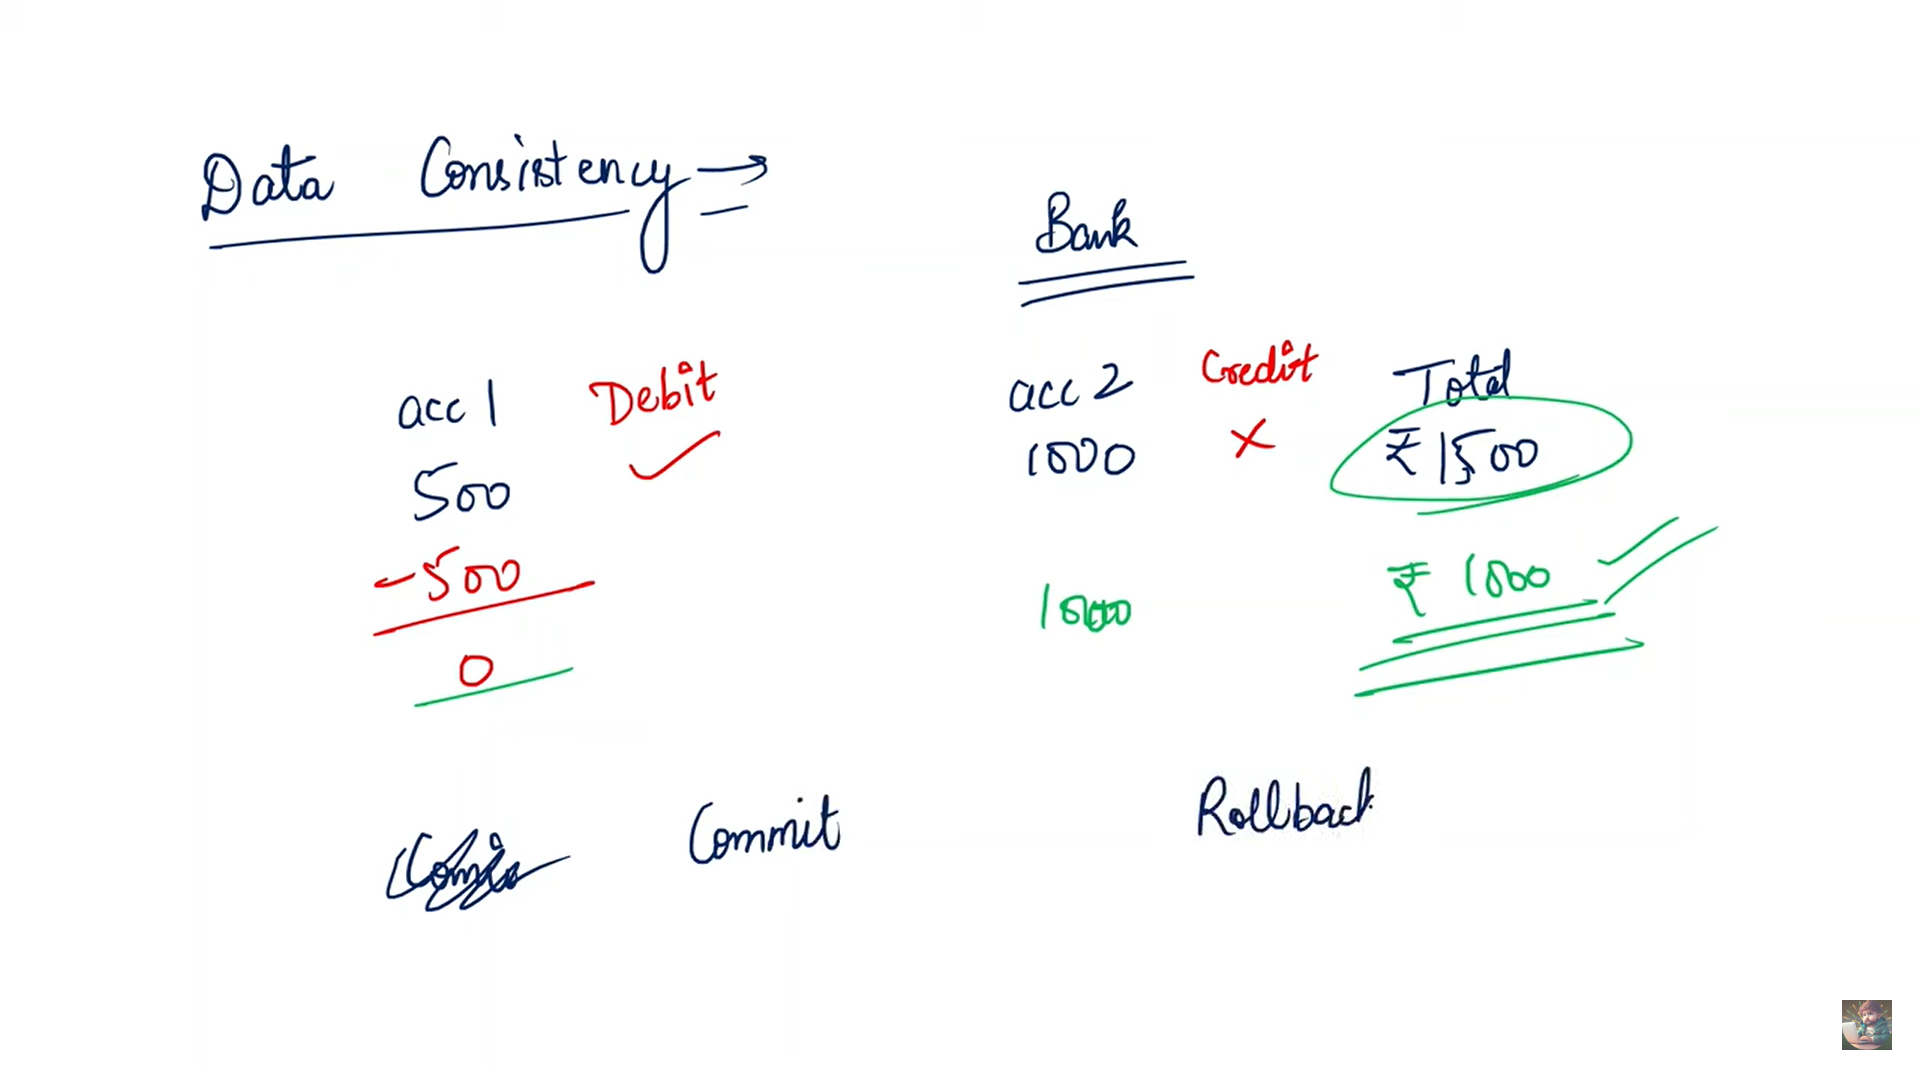 Data Consistency →
Bank
acc 1 Debit ✓
500
-500
0
acc 2 Credit ✗
1000
1000
Total
₹ 1500
₹ 1000
Commit
Rollback